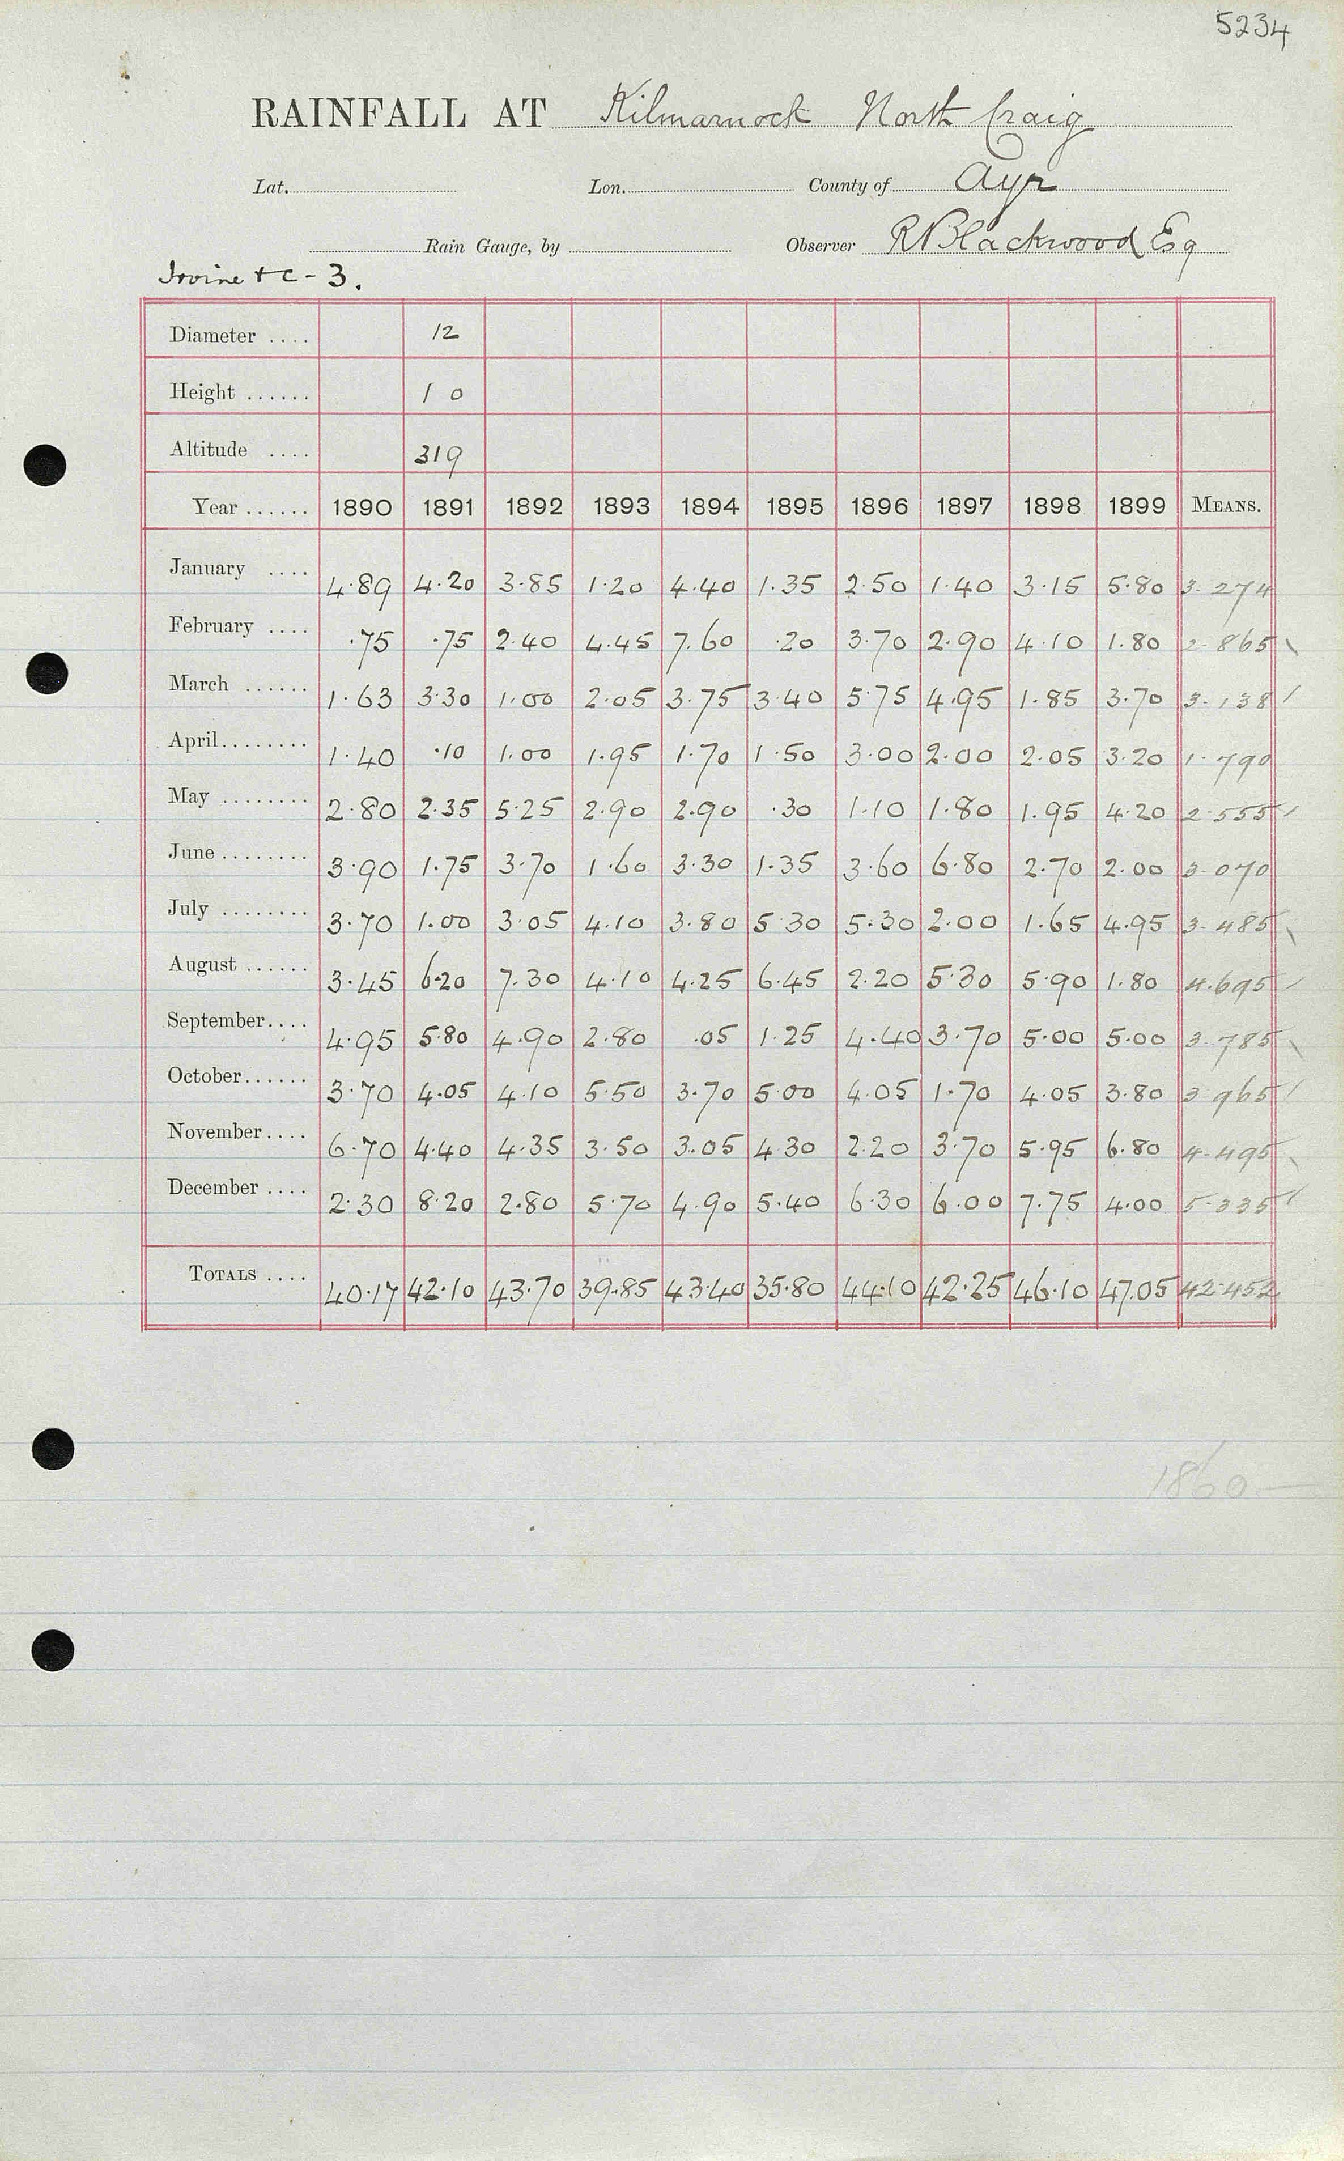 5234
RAINFALL AT Kilmarnock North Craig
Lat. Lon. County of Ayr
Rain Gauge, by Observer R Blackwood Esq
Irvine & C - 3.
Diameter .... 12
Height ...... 1 0
Altitude .... 319
Year ...... 1890 1891 1892 1893 1894 1895 1896 1897 1898 1899 MEANS.
January .... 4.89 4.20 3.85 1.20 4.40 1.35 2.50 1.40 3.15 5.80 3.274
February .... .75 .75 2.40 4.45 7.60 .20 3.70 2.90 4.10 1.80 2.865
March ...... 1.63 3.30 1.00 2.05 3.75 3.40 5.75 4.95 1.85 3.70 3.138
April........ 1.40 .10 1.00 1.95 1.70 1.50 3.00 2.00 2.05 3.20 1.790
May ........ 2.80 2.35 5.25 2.90 2.90 .30 1.10 1.80 1.95 4.20 2.555
June ........ 3.90 1.75 3.70 1.60 3.30 1.35 3.60 6.80 2.70 2.00 3.070
July ........ 3.70 1.00 3.05 4.10 3.80 5.30 5.30 2.00 1.65 4.95 3.485
August ...... 3.45 6.20 7.30 4.10 4.25 6.45 2.20 5.30 5.90 1.80 4.695
September.... 4.95 5.80 4.90 2.80 .05 1.25 4.40 3.70 5.00 5.00 3.785
October...... 3.70 4.05 4.10 5.50 3.70 5.00 4.05 1.70 4.05 3.80 3.965
November.... 6.70 4.40 4.35 3.50 3.05 4.30 2.20 3.70 5.95 6.80 4.495
December .... 2.30 8.20 2.80 5.70 4.90 5.40 6.30 6.00 7.75 4.00 5.335
TOTALS .... 40.17 42.10 43.70 39.85 43.40 35.80 44.10 42.25 46.10 47.05 42.452
1860 —